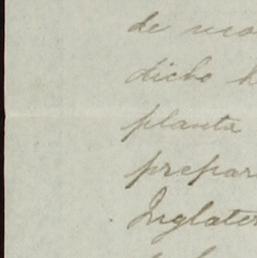 de
dicho
planta
prepar
Inglater